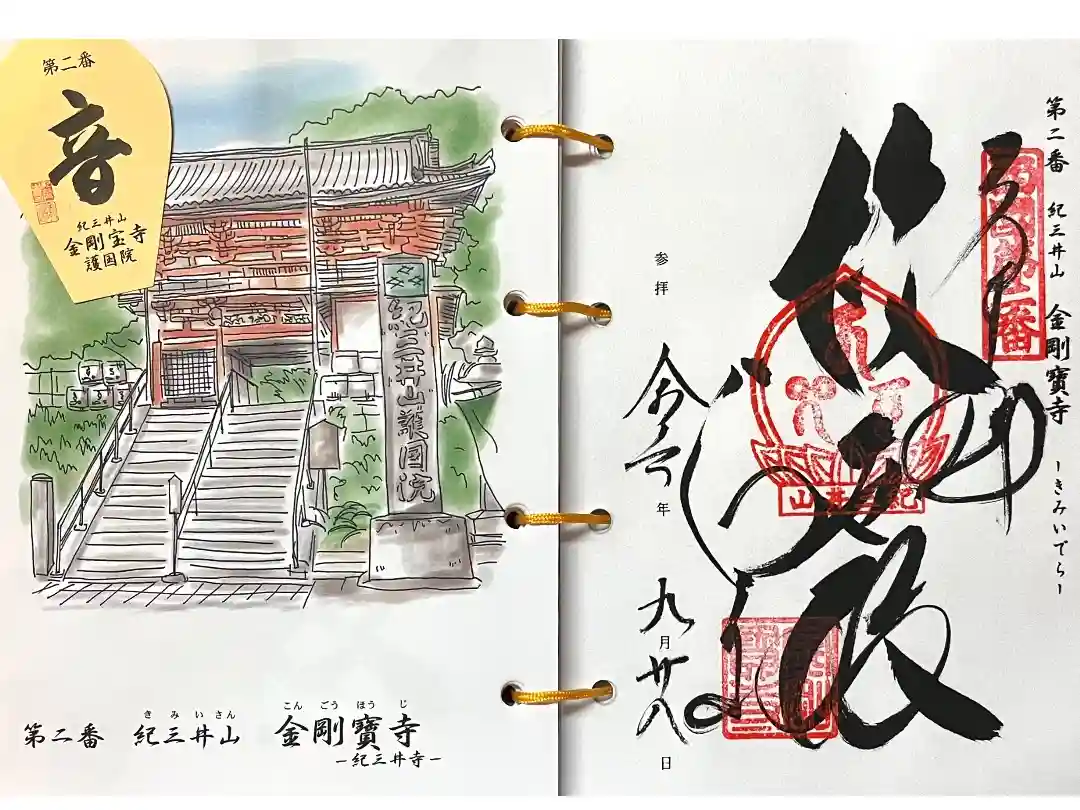 第二番
音
紀三井山
金剛宝寺
護国院
紀三井山護國院
きみいさん こんごうほうじ
第二番 紀三井山 金剛寶寺
－紀三井寺－
第二番 紀三井山 金剛寶寺 －きみいでら－
西國第二番
紀三井山
参拝 令 年 九月廿八日